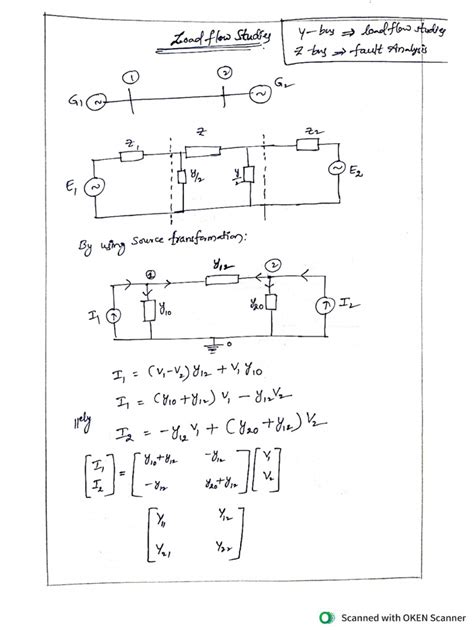 Load flow Studies
Y-bus ⇒ load flow studies
Z-bus ⇒ fault Analysis
1 2
G1 G2
Z1 Z Z2
E1 y/2 y/2 E2
By using source transformation:
1 y12 2
I1 y10 y20 I2
0
I1 = (V1-V2) y12 + V1 y10
I1 = (y10 + y12) V1 - y12 V2
||ely
I2 = -y12 V1 + (y20 + y12) V2
[I1 I2] = [y10+y12 -y12 -y12 y20+y12] [V1 V2]
[Y11 Y12
Y21 Y22]
Scanned with OKEN Scanner